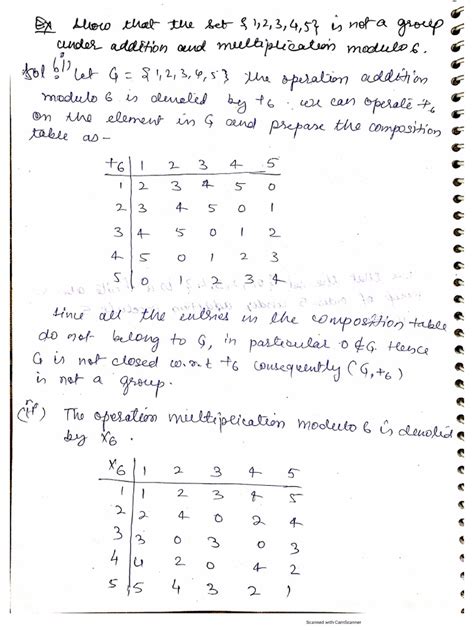 Ex Show that the set {1,2,3,4,5} is not a group
under addition and multiplication modulo 6.
Sol: (i) let G = {1,2,3,4,5} the operation addition
modulo 6 is denoted by +6 . we can operate +6
on the element in G and prepare the composition
table as -
+6 1 2 3 4 5
1 2 3 4 5 0
2 3 4 5 0 1
3 4 5 0 1 2
4 5 0 1 2 3
5 0 1 2 3 4
Since all the entries in the composition table
do not belong to G, in particular 0 ∉ G. Hence
G is not closed w.r.t +6 consequently (G,+6)
is not a group.
(ii) The operation multiplication modulo 6 is denoted
by ×6 .
×6 1 2 3 4 5
1 1 2 3 4 5
2 2 4 0 2 4
3 3 0 3 0 3
4 4 2 0 4 2
5 5 4 3 2 1
Scanned with CamScanner